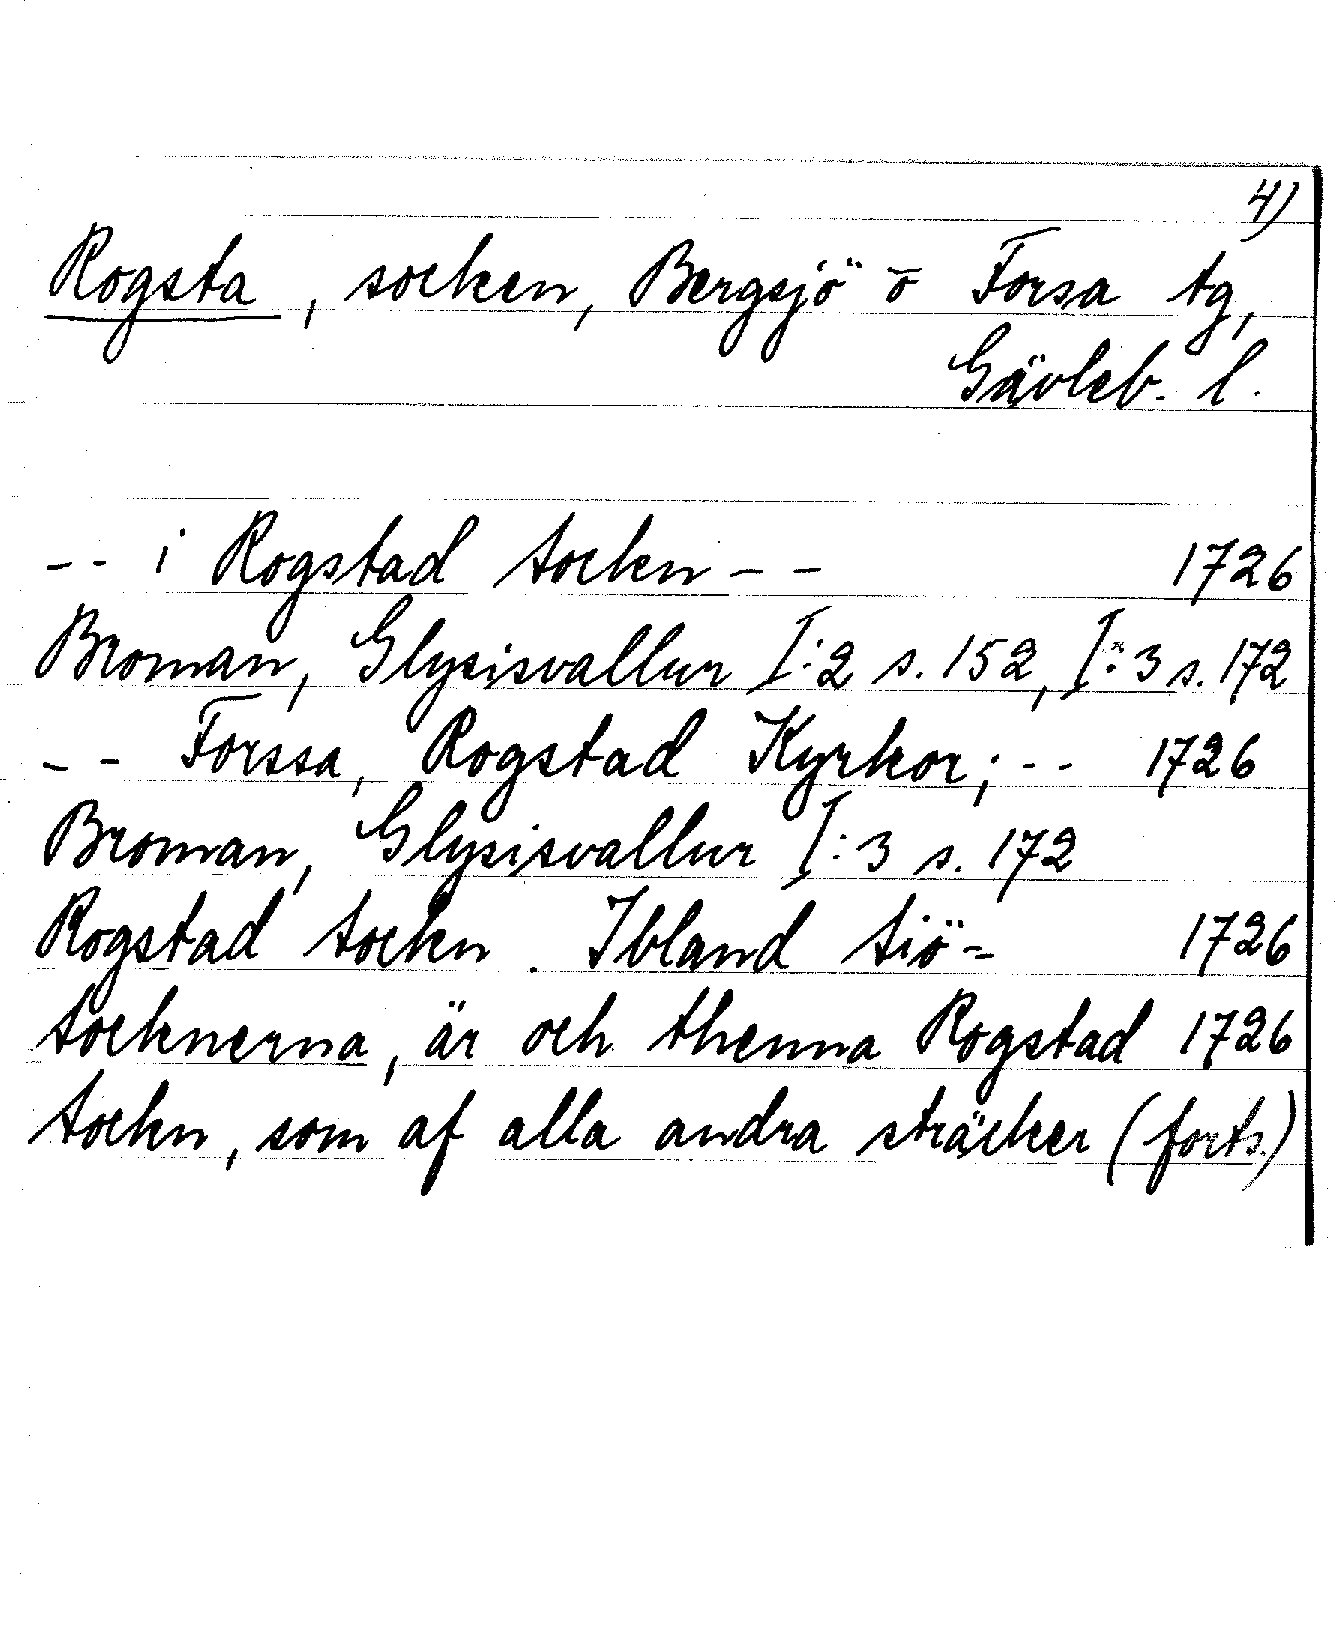 4)
Rogsta, socken, Bergsjö o Forsa tg,
Gävleb. l.
-- i Rogstad Sockn -- 1726
Broman, Glysisvallur I:2 s. 152, I:3 s. 172
-- Forssa, Rogstad Kyrkor; -- 1726
Broman, Glysisvallur I:3 s. 172
Rogstad Sockn. Ibland Siö= 1726
Socknerna, är och thenna Rogstad 1726
Sockn, som af alla andra sträcker (forts.)